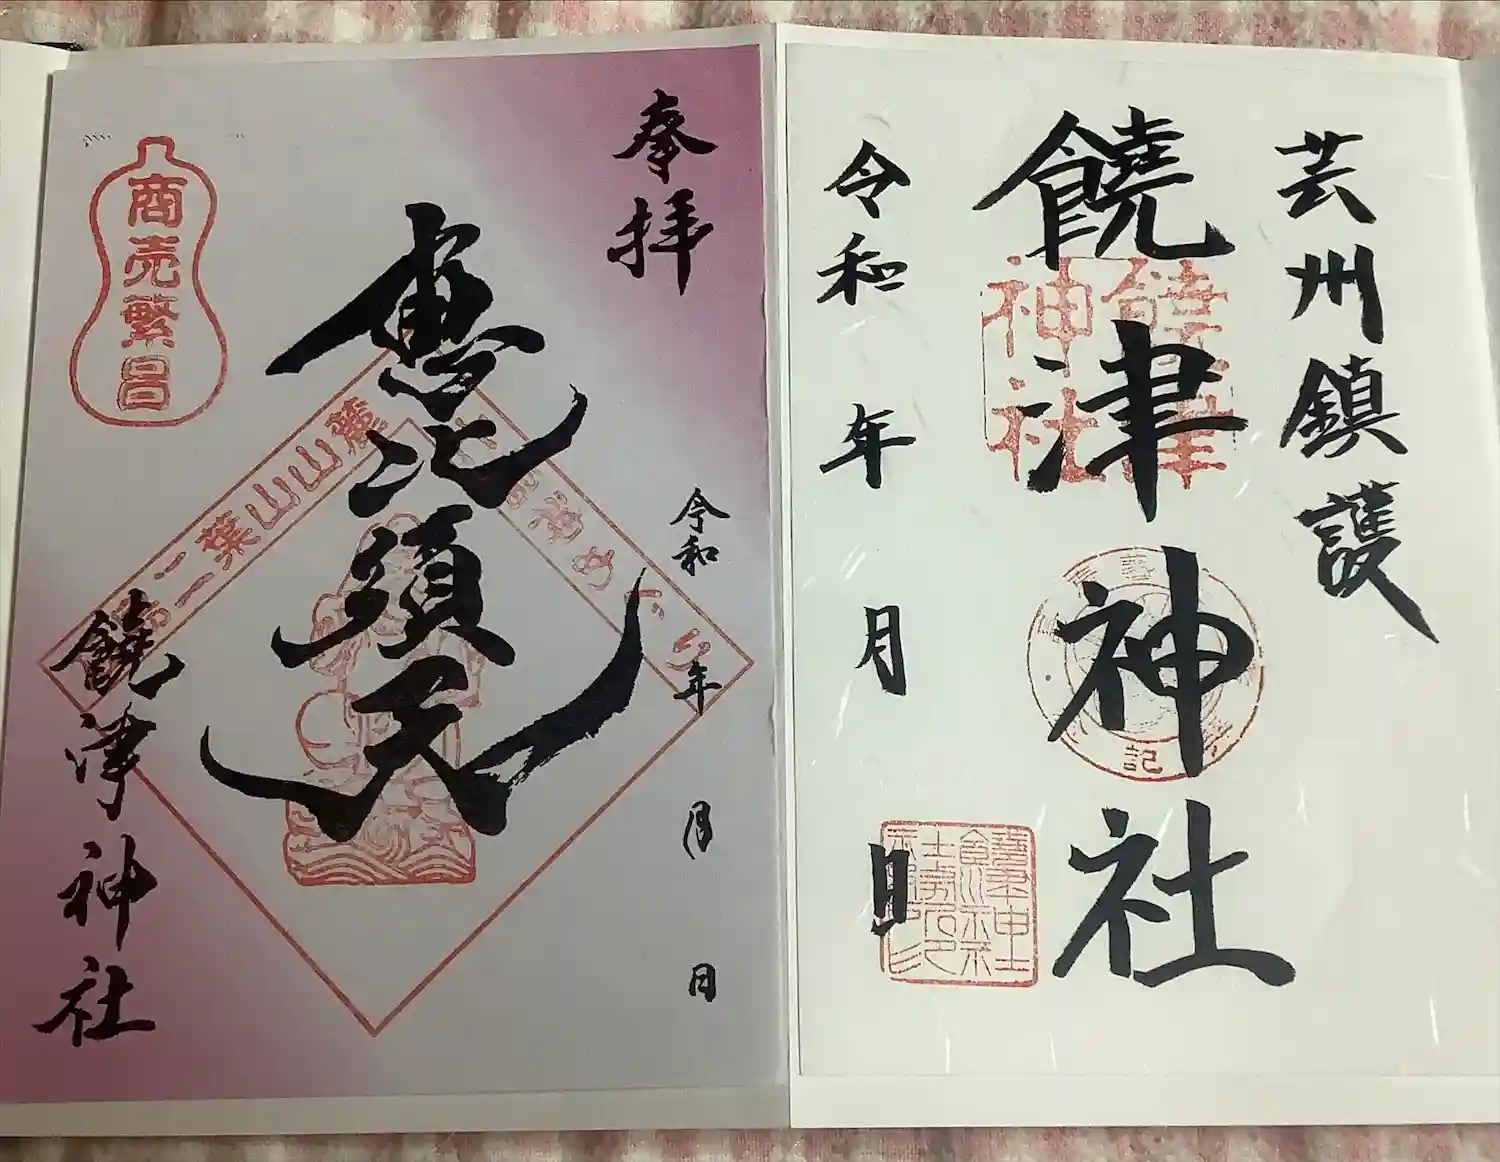 芸州鎮護
饒津神社
饒津
神社
記
令和 年 月 日
奉拝
令和 年 月 日
恵比須天
二葉山山麓
めぐり
商売繁昌
饒津神社